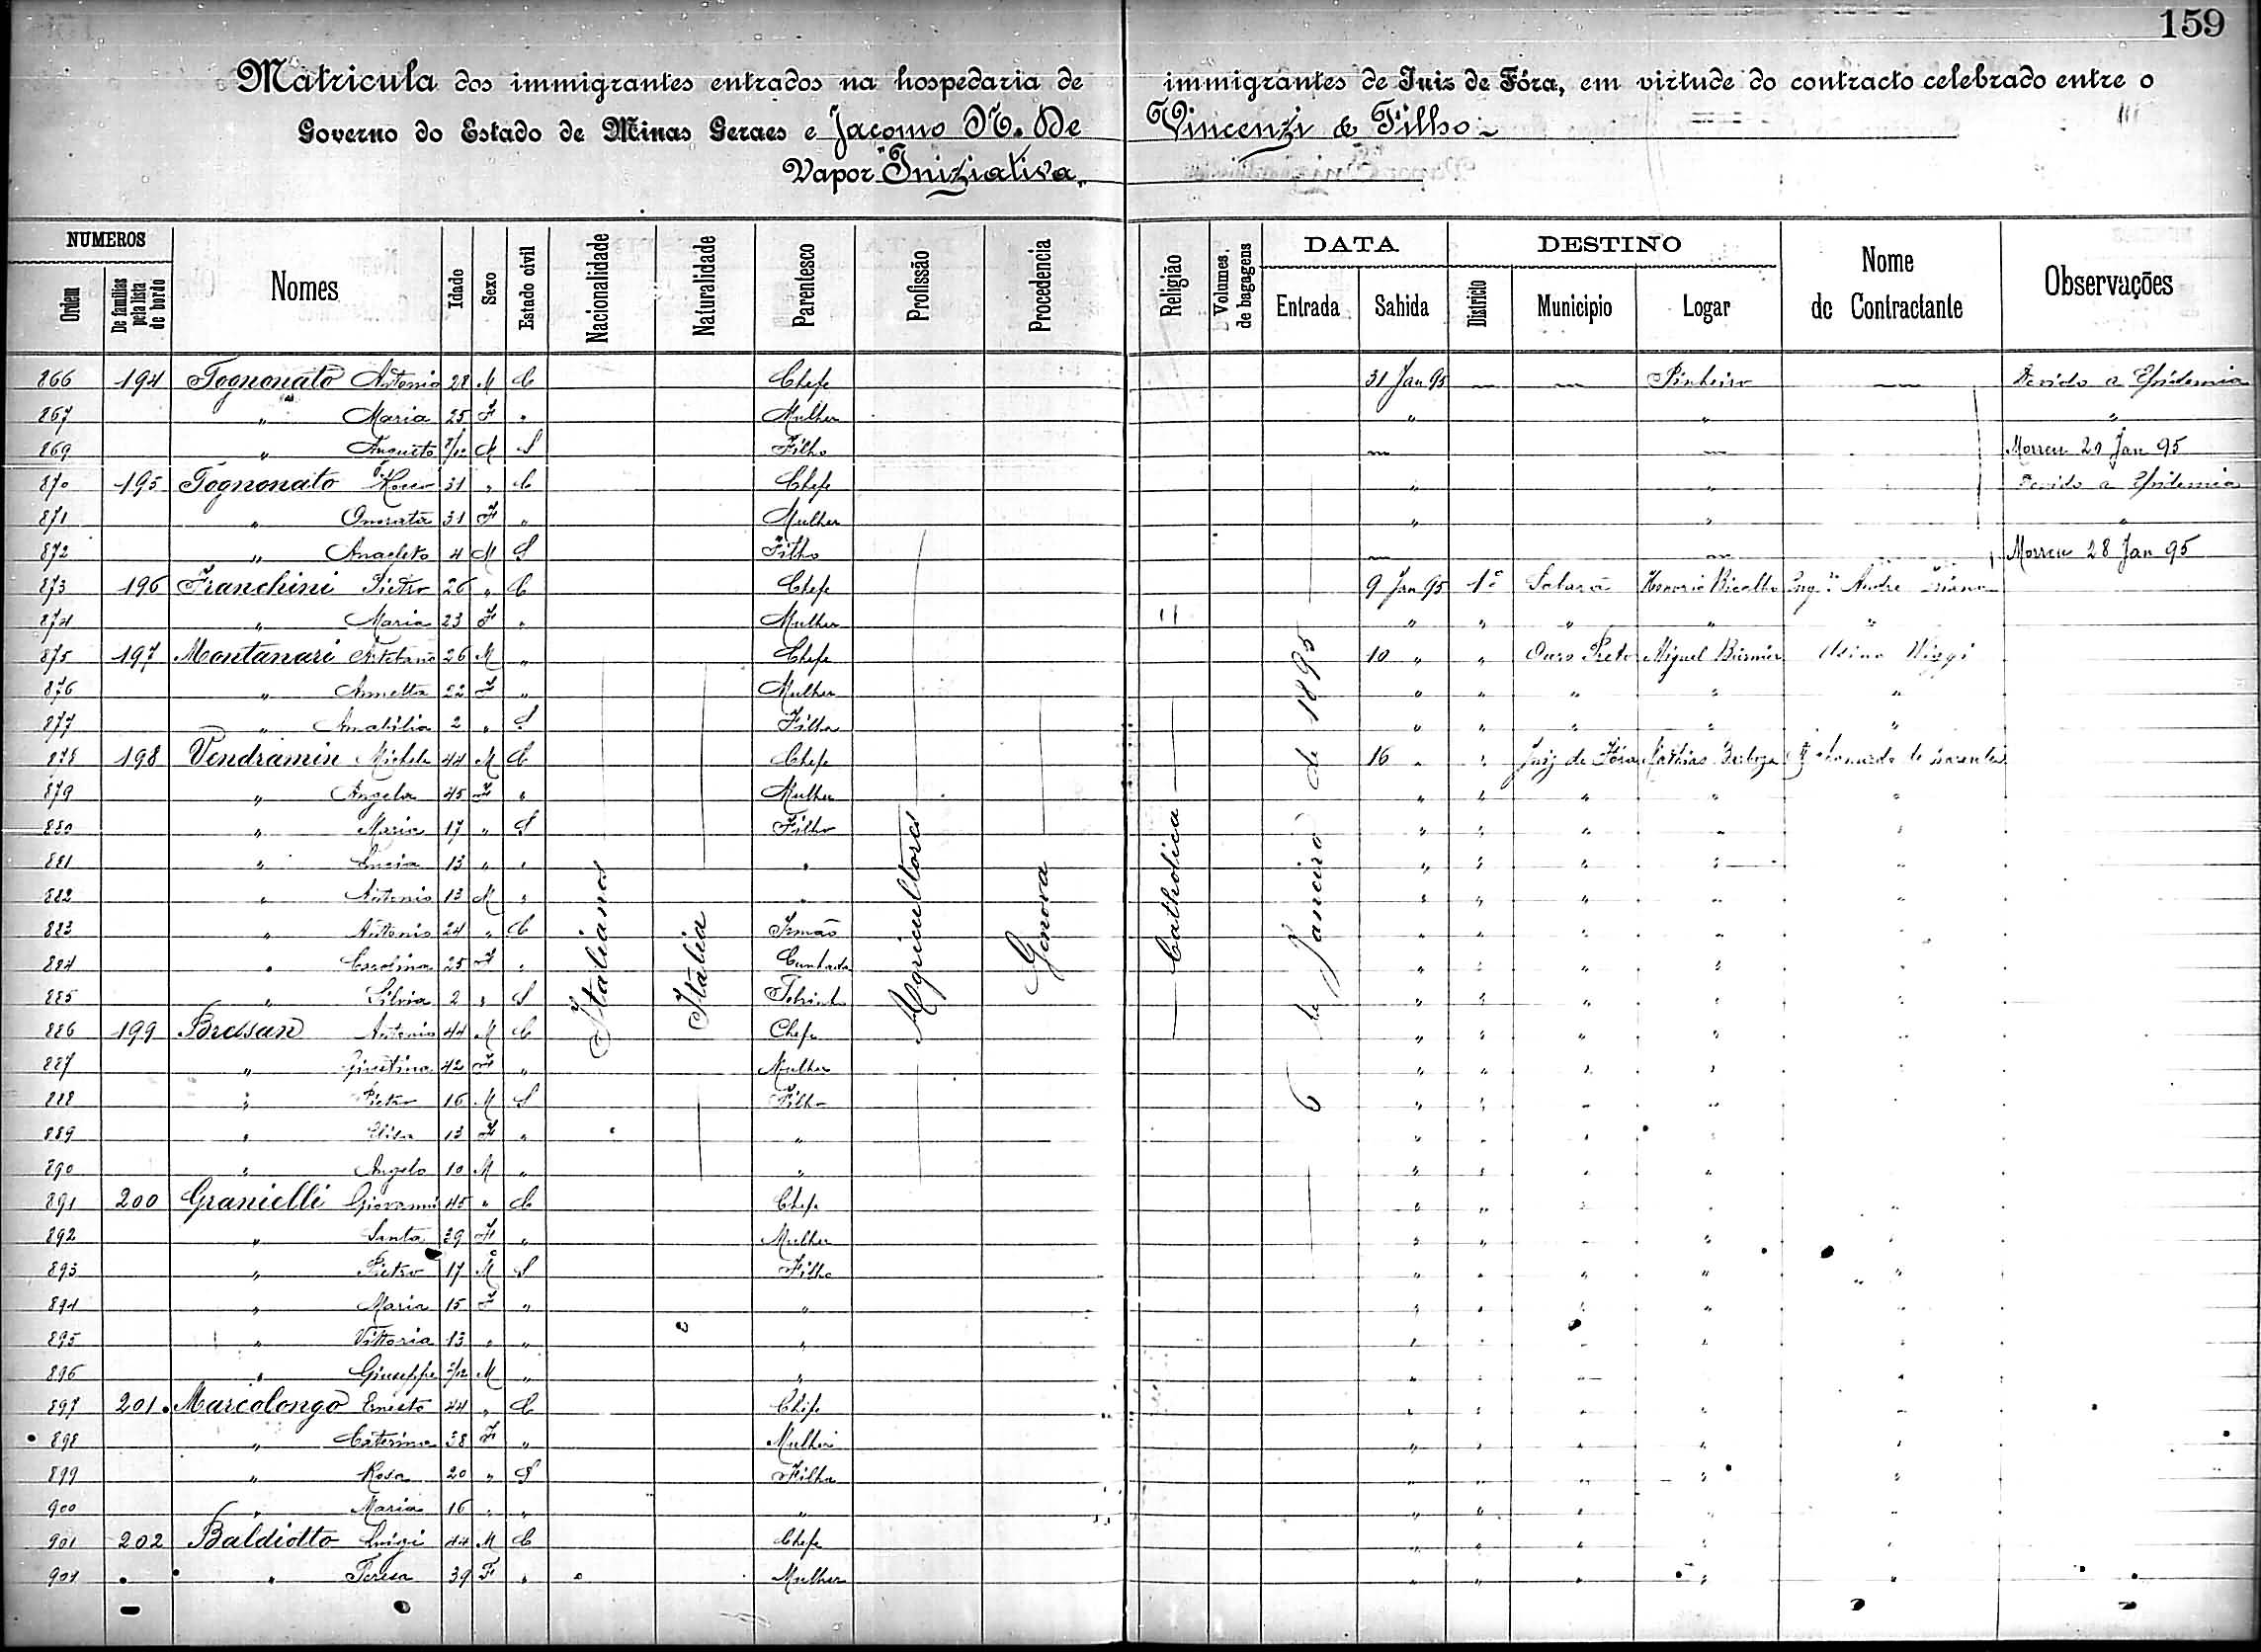 159
Matricula dos immigrantes entrados na hospedaria de immigrantes de Juiz de Fóra, em virtude do contracto celebrado entre o
Governo do Estado de Minas Geraes e Jacomo N. De Vincenzi & Filho
Vapor "Iniziativa"
NUMEROS DATA DESTINO
Ordem De familias pela lista de bordo Nomes Idade Sexo Estado civil Nacionalidade Naturalidade Parentesco Profissão Procedencia Religião Volumes de bagagens Entrada Sahida Districto Municipio Logar Nome do Contractante Observações
866 194 Tognonato Antonio 28 M C Chefe 31 Jan 95 — — Pinheiro — Devido a Epidemia
867 " Maria 25 F " Mulher " " "
869 " Augusto /12 M S Filho — — Morreu 20 Jan 95
870 195 Tognonato Rocco 31 " C Chefe " " Devido a Epidemia
871 " Onorata 31 F " Mulher " " "
872 " Anacleto 4 M S Filho — — Morreu 28 Jan 95
873 196 Franchini Pietro 26 " C Chefe 9 Jan 95 1º Sabará Honorio Bicalho Engº Andre
874 " Maria 23 F " Mulher " " " " "
875 197 Montanari 26 M " Chefe 10 " " Ouro Preto Miguel Burnier Usina Wigg
876 " Annetta 22 F " Mulher " " " " "
877 " Amabilia 2 " S Filha " " " " "
878 198 Vendramin Michele 44 M C Chefe 16 " " Juiz de Fóra Mathias Barboza
879 " Angela 45 F " Mulher " " " " "
880 " Maria 17 " S Filho " " " " "
881 " Lucia 13 " " " " " " " "
882 " Antonio 13 M " " " " " " "
883 " Antonio 24 " C Irmão " " " " "
884 " Carolina 25 F " Cunhada " " " " "
885 " Silvia 2 " S " " " " "
886 199 Bressan Antonio 44 M C Chefe " " " " "
887 " Giustina 42 F " Mulher " " " " "
888 " Pietro 16 M S Filho " " " " "
889 " Elisa 13 F " " " " " " "
890 " Angelo 10 M " " " " " " "
891 200 Granielli Giovanni 45 " C Chefe " " " " "
892 " Santa 39 F " Mulher " " " " "
893 " Pietro 17 M S Filho " " " " "
894 " Maria 15 F " " " " " " "
895 " Vittoria 13 " " " " " " " "
896 " Giuseppe /12 M " " " " " " "
897 201 Marcolongo Ernesto 44 " C Chefe " " " " "
898 " Caterina 38 F " Mulher " " " " "
899 " Rosa 20 " S Filha " " " " "
900 " Maria 16 " " " " " " " "
901 202 Baldiotto Luigi 44 M C Chefe " " " " "
901 " Teresa 39 F " Mulher " " " " "
Italianos
Italia
Agricultores
Genova
Catholica
6 de Janeiro de 1895